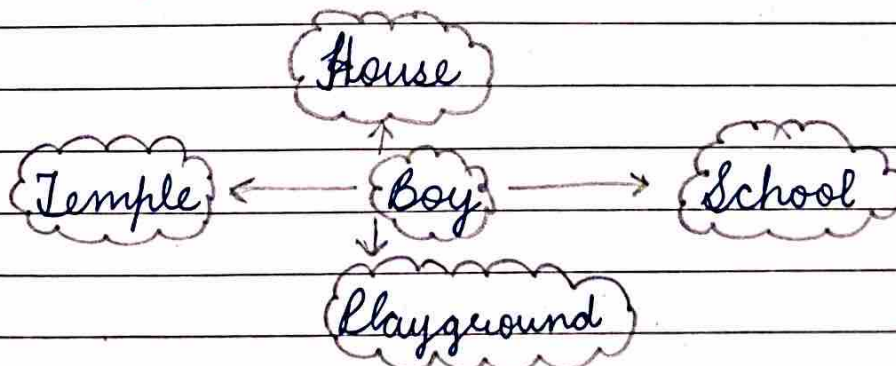 House
Temple Boy School
Playground